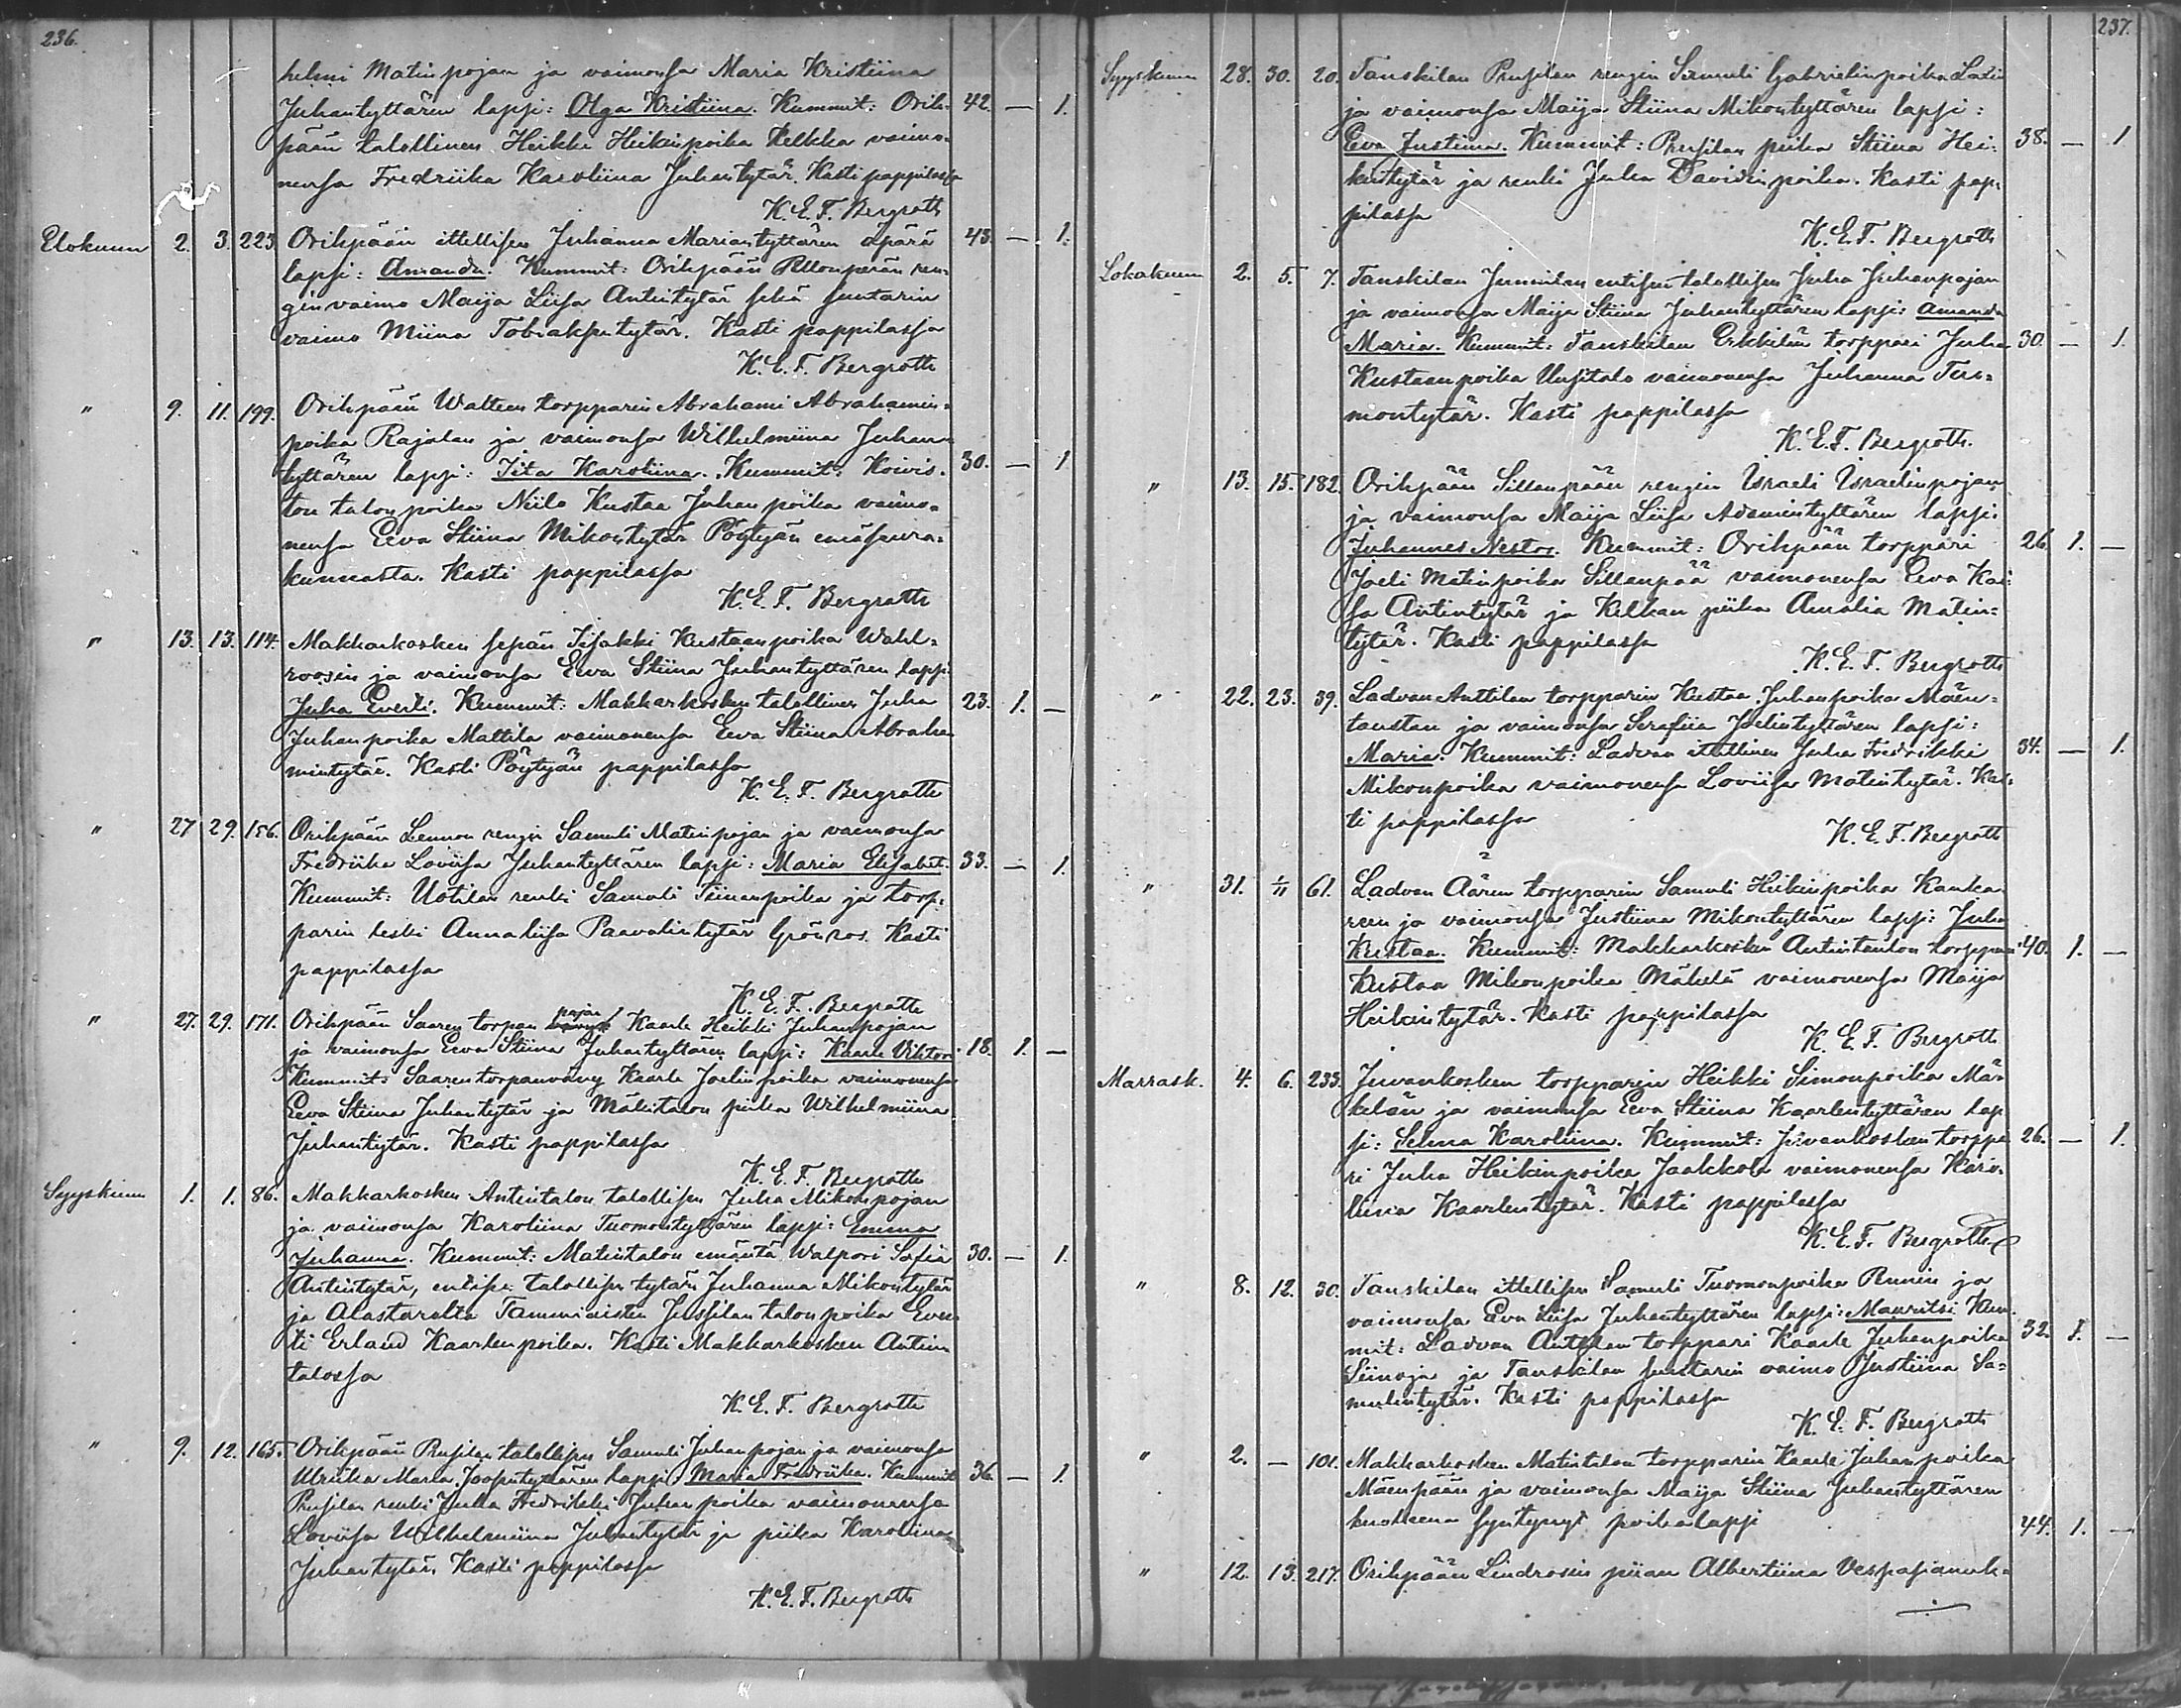 236.
helmi Matinpojan ja vaimonsa Maria Kristiina
Juhantyttären lapsi: Olga Kristiina. Kummit: Orih- 42. — 1.
pään talollinen Heikki Heikinpoika Kelkka vaimo-
nensa Fredriika Karoliina Juhantytär. Kasti pappilassa
K. E. F. Bergroth
Elokuun 2. 3. 223. Orihpään itellisen Juhanna Mariantyttären äpärä 43. — 1.
lapsi: Amanda. Kummit: Orihpään Pellonperän ren-
gin vaimo Maija Liisa Antintytär sekä suntarin
vaimo Miina Tobiaksentytär. Kasti pappilassa
K. E. F. Bergroth
" 9. 11. 199. Orihpään Walteen torpparin Abrahami Abrahamin-
poika Rajalan ja vaimonsa Wilhelmiina Juhan-
tyttären lapsi: Iita Karoliina. Kummit: Koivis- 30. — 1
ton talonpoika Niilo Kustaa Juhanpoika vaimo-
nensa Eeva Stiina Mikontytär Pöytyän emäseura-
kunnasta. Kasti pappilassa
K. E. F. Bergroth
" 13. 13. 114. Makkarkosken sepän Iisakki Kustaanpoika Wahl-
roosin ja vaimonsa Eeva Stiina Juhantyttären lapsi
Juha Everti. Kummit: Makkarkosken talollinen Juha 23. 1. —
Juhanpoika Mattila vaimonensa Eeva Stiina Abraha-
mintytär. Kasti Pöytyän pappilassa
K. E. F. Bergroth
" 27 29. 156. Orihpään Lennon rengin Samuli Matinpojan ja vaimonsa
Fredriika Loviisa Juhantyttären lapsi: Maria Elisabet. 33. — 1.
Kummit: Uotilan renki Samuli Tiinanpoika ja torp-
parin leski Annaliisa Paavalintytär Grönros. Kasti
pappilassa
K. E. F. Bergroth
" 27. 29. 171. Orihpään Saaren torpan pojan Kaarle Heikki Juhanpojan
ja vaimonsa Eeva Stiina Juhantyttären lapsi: Kaarle Viktori 18. 1. —
Kummit: Saarentorpanvävy Kaarle Joelinpoika vaimonensa
Eeva Stiina Juhantytär ja Mäkitalon piika Wilhelmiina
Juhantytär. Kasti pappilassa
K. E. F. Bergroth
Syyskuun 1. 1. 86. Makkarkosken Antintalon talollisen Juha Mikonpojan
ja vaimonsa Karoliina Tuomontyttären lapsi: Emma
Juhanna. Kummit: Matintalon emäntä Walpori Sofia 30. — 1.
Antintytär, entisen talollisen tytär Juhanna Mikontytär
ja Alastarolta Tammiaisten Jussilan talonpoika Ever-
ti Erland Kaarlenpoika. Kasti Makkarkosken Antin
talossa
K. E. F. Bergroth
" 9. 12. 165. Orihpään Prusilan talollisen Samuli Juhanpojan ja vaimonsa
Ulriika Maria Jooseptyttären lapsi: Maria Fredriika. Kummit 36. — 1.
Prusilan renki Juha Fredrikki Juhanpoika vaimonensa
Loviisa Wilhelmiina Juhantytär ja piika Karoliina
Juhantytär. Kasti pappilassa
K. E. F. Bergroth
237.
Syyskuun 28. 30. 20. Tanskilan Prusilan rengin Samuli Gabrielinpoika
ja vaimonsa Maija Stiina Mikontyttären lapsi:
Eeva Justiina. Kummit: Prusilan piika Stiina Hei- 38. — 1
kintytär ja renki Juha Davidinpoika. Kasti pap-
pilassa
K. E. F. Bergroth
Lokakuun 2. 5. 7. Tanskilan Junnilan entisen talollisen Juha Juhanpojan
ja vaimonsa Maija Stiina Juhantyttären lapsi: Amanda
Maria. Kummit: Tanskilan Erkkilän torppari Juha 30. — 1.
Kustaanpoika Uusitalo vaimonensa Juhanna Tuo-
montytär. Kasti pappilassa
K. E. F. Bergroth.
" 13. 15. 182. Orihpään Sillanpään rengin Israeli Israelinpojan
ja vaimonsa Maija Liisa Adamintyttären lapsi.
Juhannes Nestor. Kummit: Orihpään torppari 26. 1. —
Joeli Matinpoika Sillanpää vaimonensa Eeva Kai-
sa Antintytär ja Kelkan piika Amalia Matin-
tytär. Kasti pappilassa
K. E. F. Bergroth
" 22. 23. 39. Ladvan Anttilan torpparin Kustaa Juhanpoika Mäen-
taustan ja vaimonsa Serafiia Joelintyttären lapsi:
Maria. Kummit: Ladvan itellinen Juha Fredrikki 34. — 1.
Mikonpoika vaimonensa Loviisa Matintytär. Kas-
ti pappilassa
K. E. F. Bergroth
" 31. 1/11 61. Ladvan Äären torpparin Samuli Heikinpoika Kanka-
ren ja vaimonsa Justiina Mikontyttären lapsi: Juha
Kustaa. Kummit: Makkarkosken Antintalon torppari 40. 1. —
Kustaa Mikonpoika Mäkelä vaimonensa Maija
Heikintytär. Kasti pappilassa
K. E. F. Bergroth
Marrask. 4. 6. 233. Juvankosken torpparin Heikki Simonpoika Mä-
kelän ja vaimonsa Eeva Stiina Kaarlentyttären lap
si: Selma Karoliina. Kummit: Juvankosken torppa 26. — 1.
ri Juha Heikinpoika Jaakkola vaimonensa Karo-
liina Kaarlentytär. Kasti pappilassa
K. E. F. Bergroth
" 8. 12. 30. Tanskilan itellisen Samuli Tuomonpoika Runin ja
vaimonsa Eva Liisa Juhantyttären lapsi: Mauritsi. Kum-
mit: Ladvan Anttilan torppari Kaarle Juhanpoika 32. 1. —
Siinoja ja Tanskilan suntarin vaimo Justiina Sa-
mulintytär. Kasti pappilassa
K. E. F. Bergroth
" 2. — 101. Makkarkosken Matintalon torpparin Kaarle Juhanpoika
Mäenpään ja vaimonsa Maija Stiina Juhantyttären
kuolleena syntynyt poikalapsi 44. 1. —
" 12. 13. 217. Orihpään Lindrosin piian Albertiina Vespasianuk-